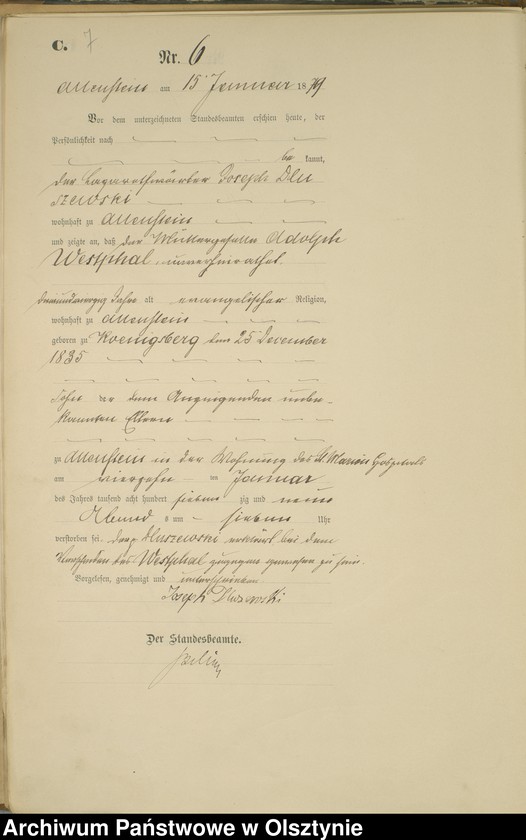 C. 7
Nr. 6
Allenstein am 15 Januar 1879.
Vor dem unterzeichneten Standesbeamten erschien heute, der
Persönlichkeit nach
be kannt,
der Lazarethwärter Joseph Dlu
szewski
wohnhaft zu Allenstein
und zeigte an, daß der Müllergeselle Adolph
Westphal, unverheirathet
dreiundvierzig Jahre alt evangelischer Religion,
wohnhaft zu Allenstein
geboren zu Koenigsberg den 25 December
1835
Sohn der dem Anzeigenden unbe-
kannten Eltern
zu Allenstein in der Wohnung des St. Marien Hospitals
am vierzehn ten Januar
des Jahres tausend acht hundert sieben zig und neun
Abends um sieben Uhr
verstorben sei. Der p Dluszewski erklärt bei dem
des Westphal zugegen gewesen zu sein.
Vorgelesen, genehmigt und unterschrieben
Joseph Dluszewski
Der Standesbeamte.
Archiwum Państwowe w Olsztynie